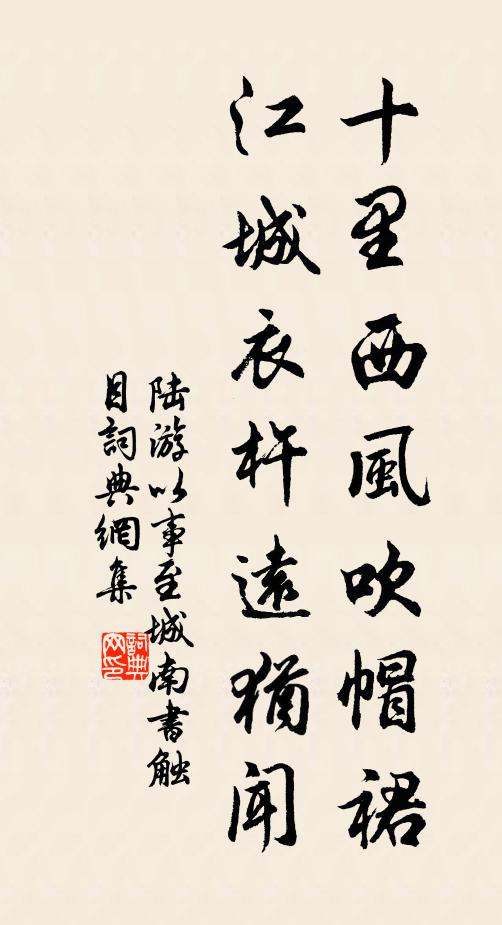 十里西風吹帽裙
江城衣杵遠猶闻
陆游以事至城南書触
目詞典網集
詞典
网印